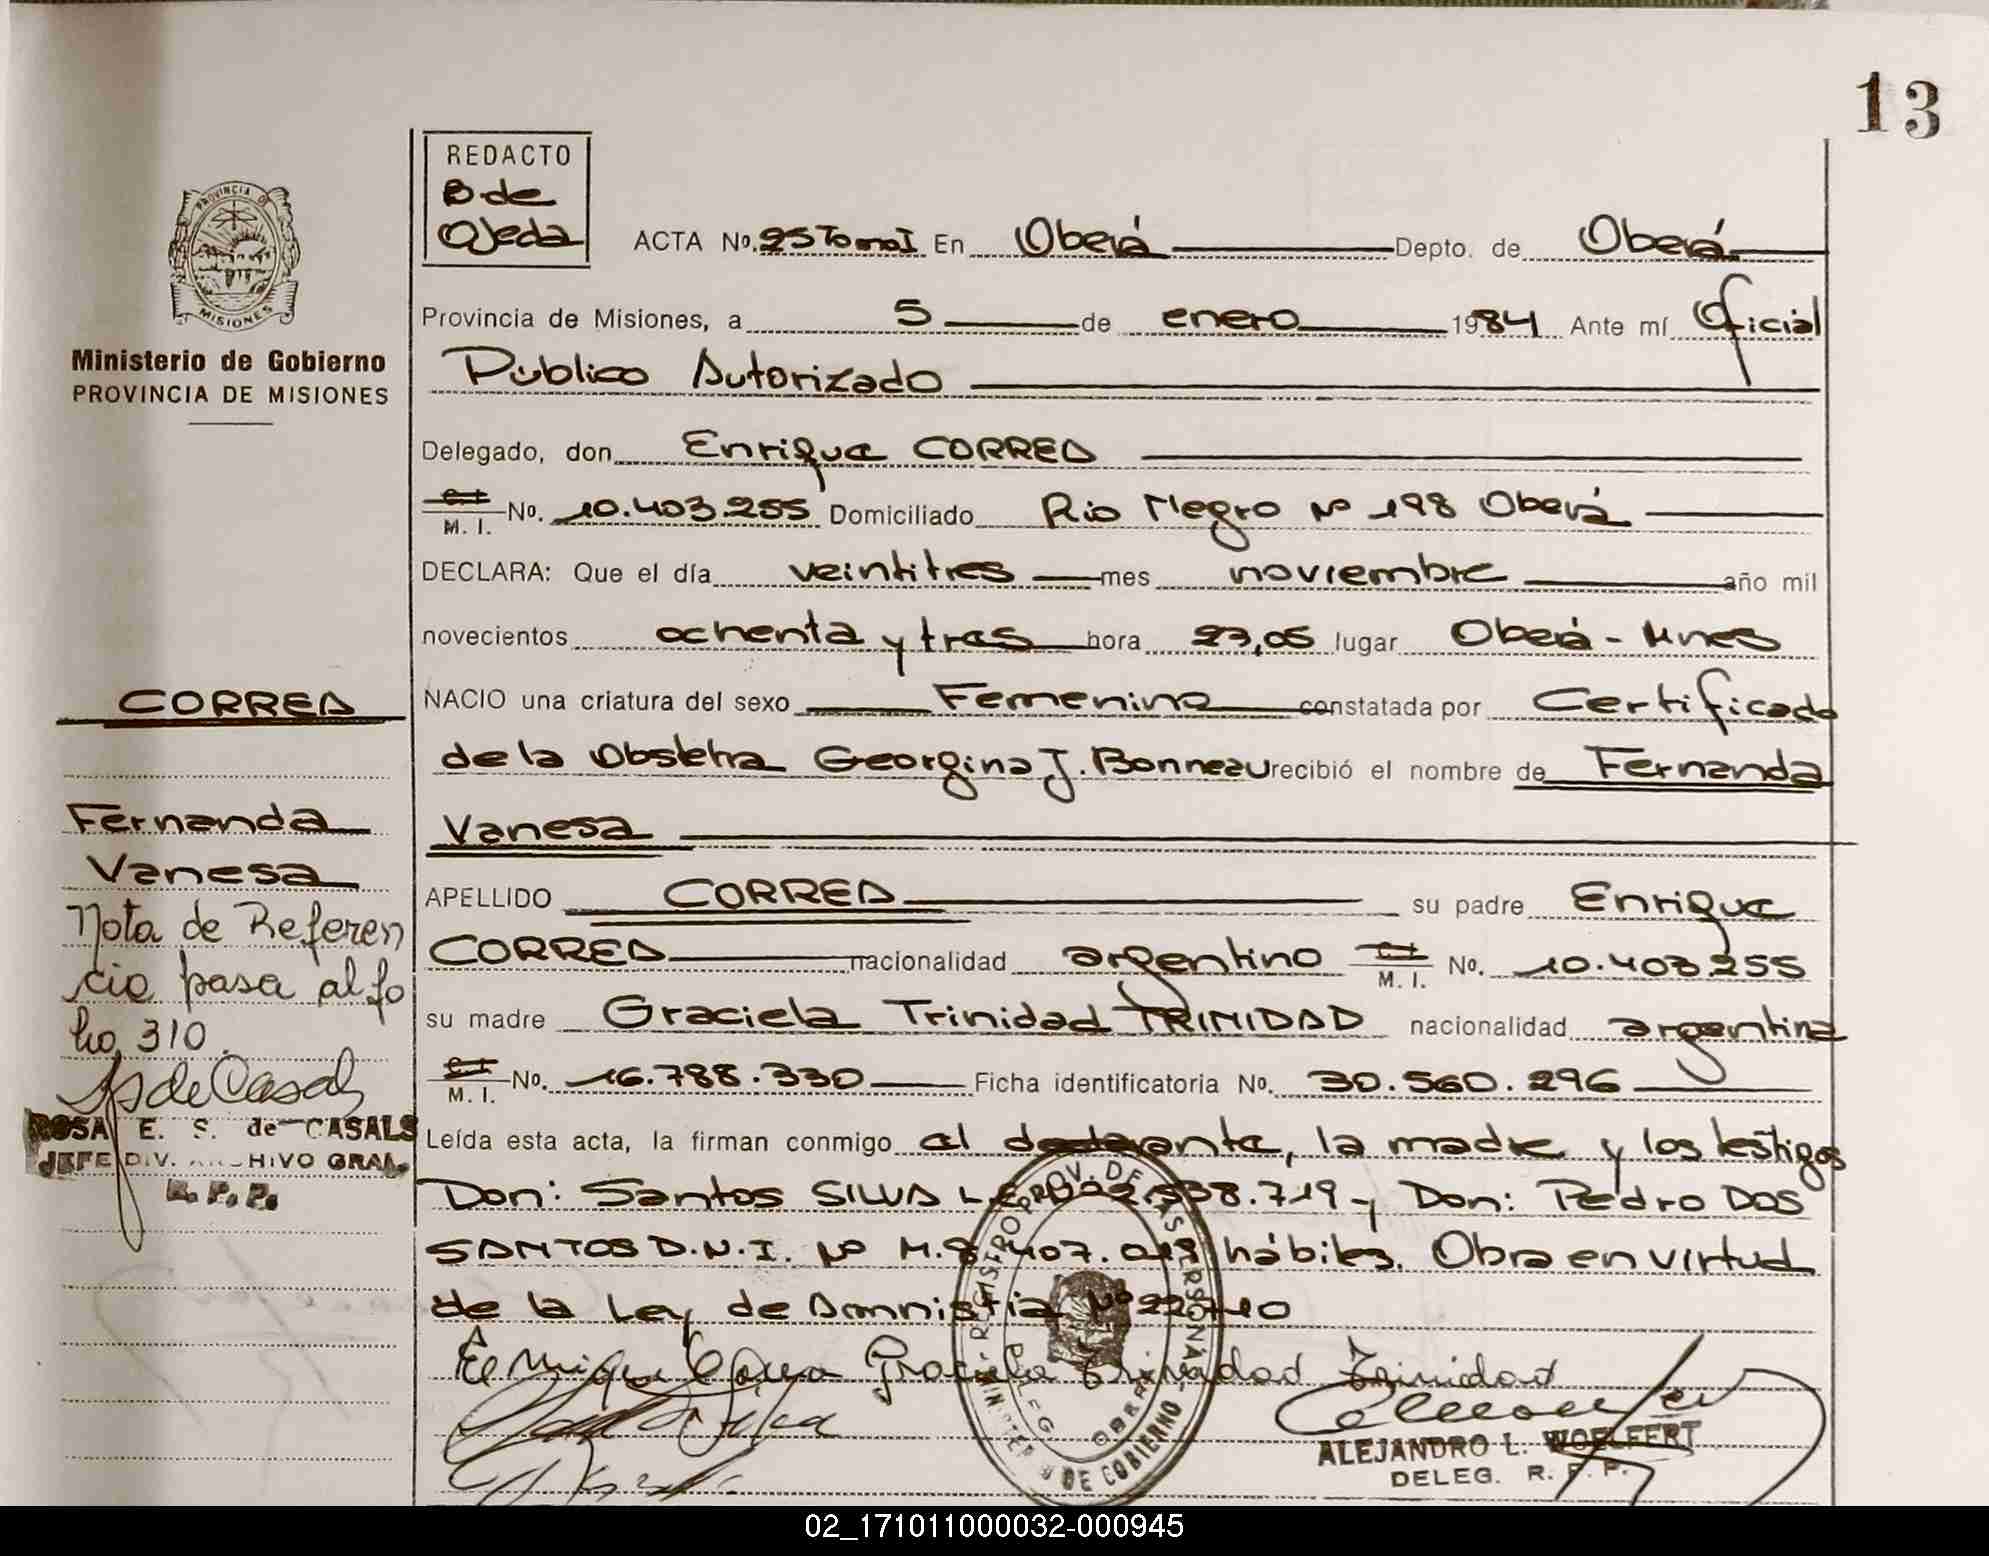 13
REDACTO
B. de
Ojeda
ACTA No. 25 Tomo I En Oberá Depto. de Oberá
PROVINCIA DE
MISIONES
Ministerio de Gobierno
PROVINCIA DE MISIONES
Provincia de Misiones, a 5 de enero 1984 Ante mí Oficial
Público Autorizado
Delegado, don Enrique CORREA
C.I. M. I. No. 10.403.255 Domiciliado Rio Negro Nº 198 Oberá
DECLARA: Que el día veintitres mes noviembre año mil
novecientos ochenta y tres hora 23,05 lugar Oberá - Mnes
NACIO una criatura del sexo Femenino constatada por Certificado
de la Obstetra Georgina J. Bonneau recibió el nombre de Fernanda
Vanesa
APELLIDO CORREA su padre Enrique
CORREA nacionalidad argentino C.I. M. I. No. 10.403.255
su madre Graciela Trinidad TRINIDAD nacionalidad argentina
C.I. M. I. No. 16.788.330 Ficha identificatoria No. 30.560.296
Leída esta acta, la firman conmigo el declarante, la madre y los testigos
Don: Santos SILVA L.E. 538.719 y Don: Pedro DOS
SANTOS D.N.I. Nº M.8.407.019 hábiles. Obra en virtud
de la Ley de Amnistia Nº 22.710
Enrique Correa Graciela Trinidad Trinidad
ALEJANDRO L. WOELFERT
DELEG. R. P. P.
REGISTRO PROV. DE LAS PERSONAS
MINISTERIO DE GOBIERNO
DELEG. OBERA
CORREA
Fernanda
Vanesa
Nota de Referen
cia pasa al fo
lio 310
R S de Casals
ROSA E. S. de CASALS
JEFE DIV. ARCHIVO GRAL.
R. P. P.
02_171011000032-000945